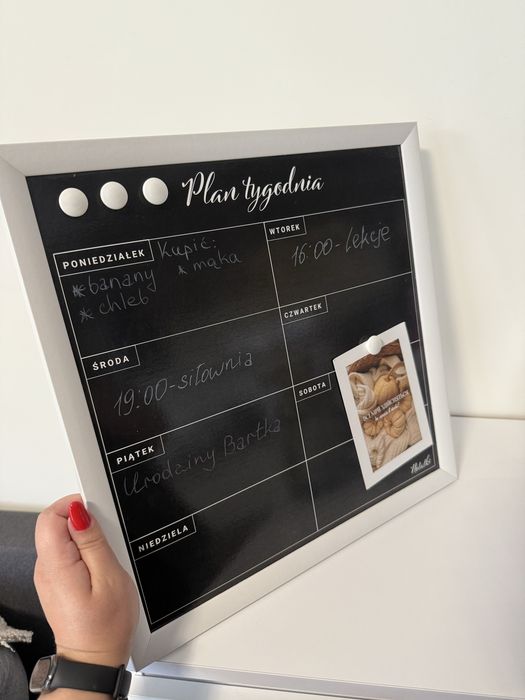 Plan tygodnia
PONIEDZIAŁEK
Kupić:
* banany
* mąka
* chleb
WTOREK
16:00 - lekcje
ŚRODA
19:00 - siłownia
CZWARTEK
PIĄTEK
Urodziny Bartka
SOBOTA
NIEDZIELA